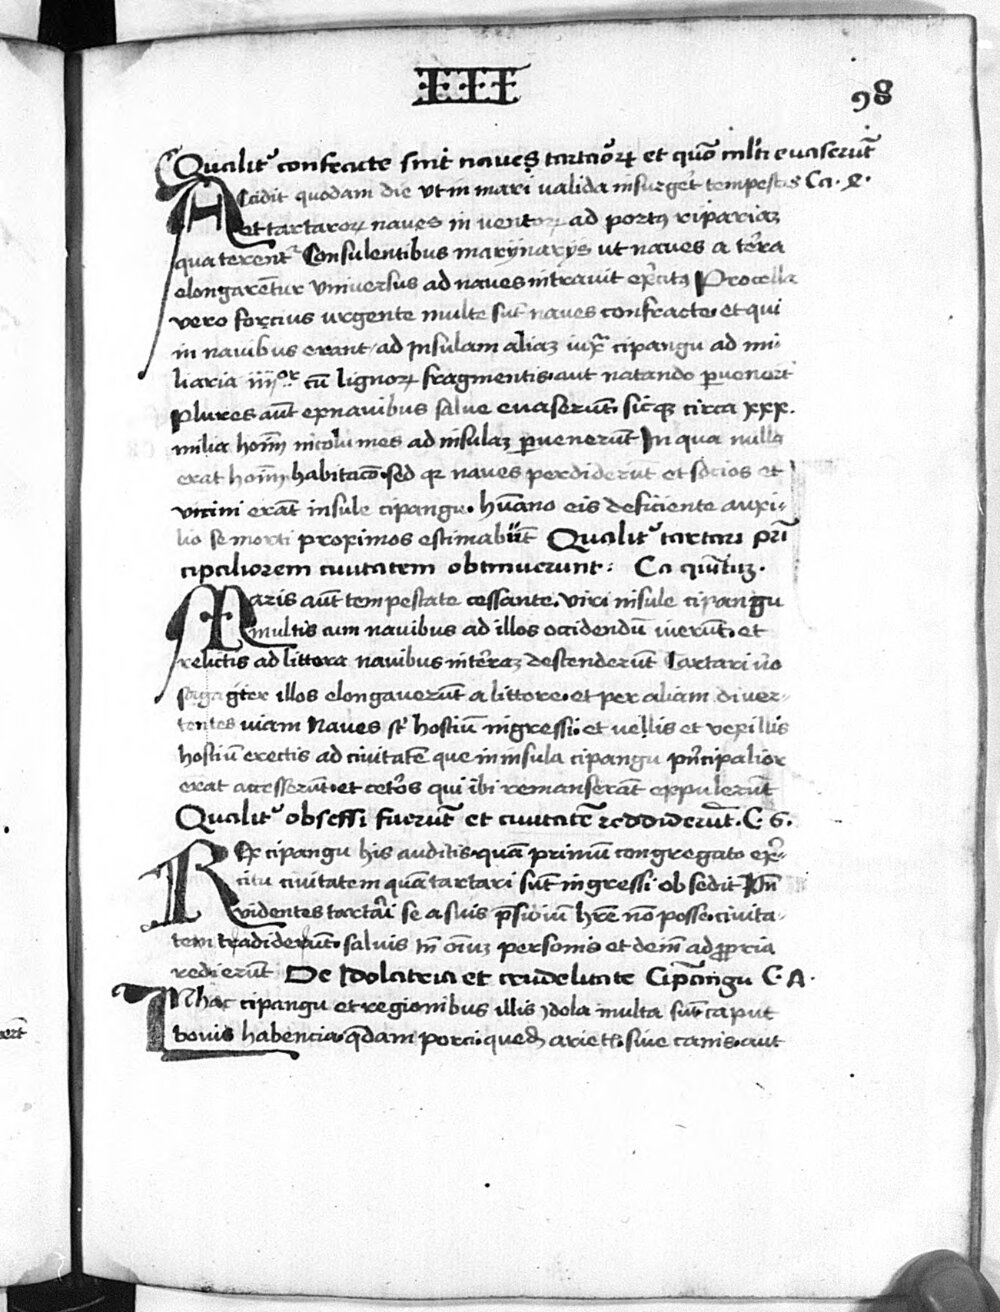 IIII
98
Qualit͛ confracte sint naves tartaroꝝ et quō ml̅ti evaserūt
Accidit quodam die ut in mari valida insurget tempestas Ca. 4.
et tartaroꝝ naves in ventoꝝ ad portꝰ ripariaꝫ
quaterent͛ Consulentibus marynarys ut naves a terra
elongarētur universus ad naves intravit exercitꝰ Procella
vero forcius urgente multe sūt naves confracte. et qui
in navibus erant ad insulam aliaꝫ iuxͣ cipangu ad mi
liaria iiijᵒʳ cū lignoꝝ fragmentis. aut natando ꝑvenert
plures aūt ex navibus salve evaserūt. sicqꝫ circa xxx.
milia hoīm incolumes ad insulaꝫ ꝑvenerūt In qua nulla
erat hoīm habitaco. sed qꝛ naves perdiderūt et socios et
vicini erāt insule cipangu. hūano eis deficiente auxi-
lio se morti proximos estimabūt Qualit͛ tartari prī
cipaliorem civitatem obtinuerunt: Ca quītuꝫ.
Maris aūt tempestate cessante. viri insule cipangu
multis cum navibus ad illos occidendū iverūt. et
relictis ad littora navibus in terraꝫ descenderūt Tartari v̄o
sagaciter illos elongaverūt a littore. et per aliam diver-
tentes viam Naves st̄ hostiū ingressi. et vellis et vexillis
hostiū erectis ad civitatē que in insula cipangu pr̄cipalior
erat accesserūt. et cetos qui ibi remanserāt expulerūt
Qualit͛ obsessi fuerūt et civitatē reddiderūt. C. 6.
Rex cipangu his auditis. quam primū congregato exer-
citu civitatem quā tartari sūt ingressi. obsedit
videntes tartari se a suis p̄sidiū hr̄e nō posse. civita-
tem tradiderūt. salvis tn̄ oīuꝫ personis et demū ad ꝓpria
redierūt De Idolatria et crudelitate Cipāngu C. Λ.
In hac cipangu et regionibus illis ydola multa sūt caput
bovis habencia. qdam porci. quedꝫ arietis. sive canis. aut